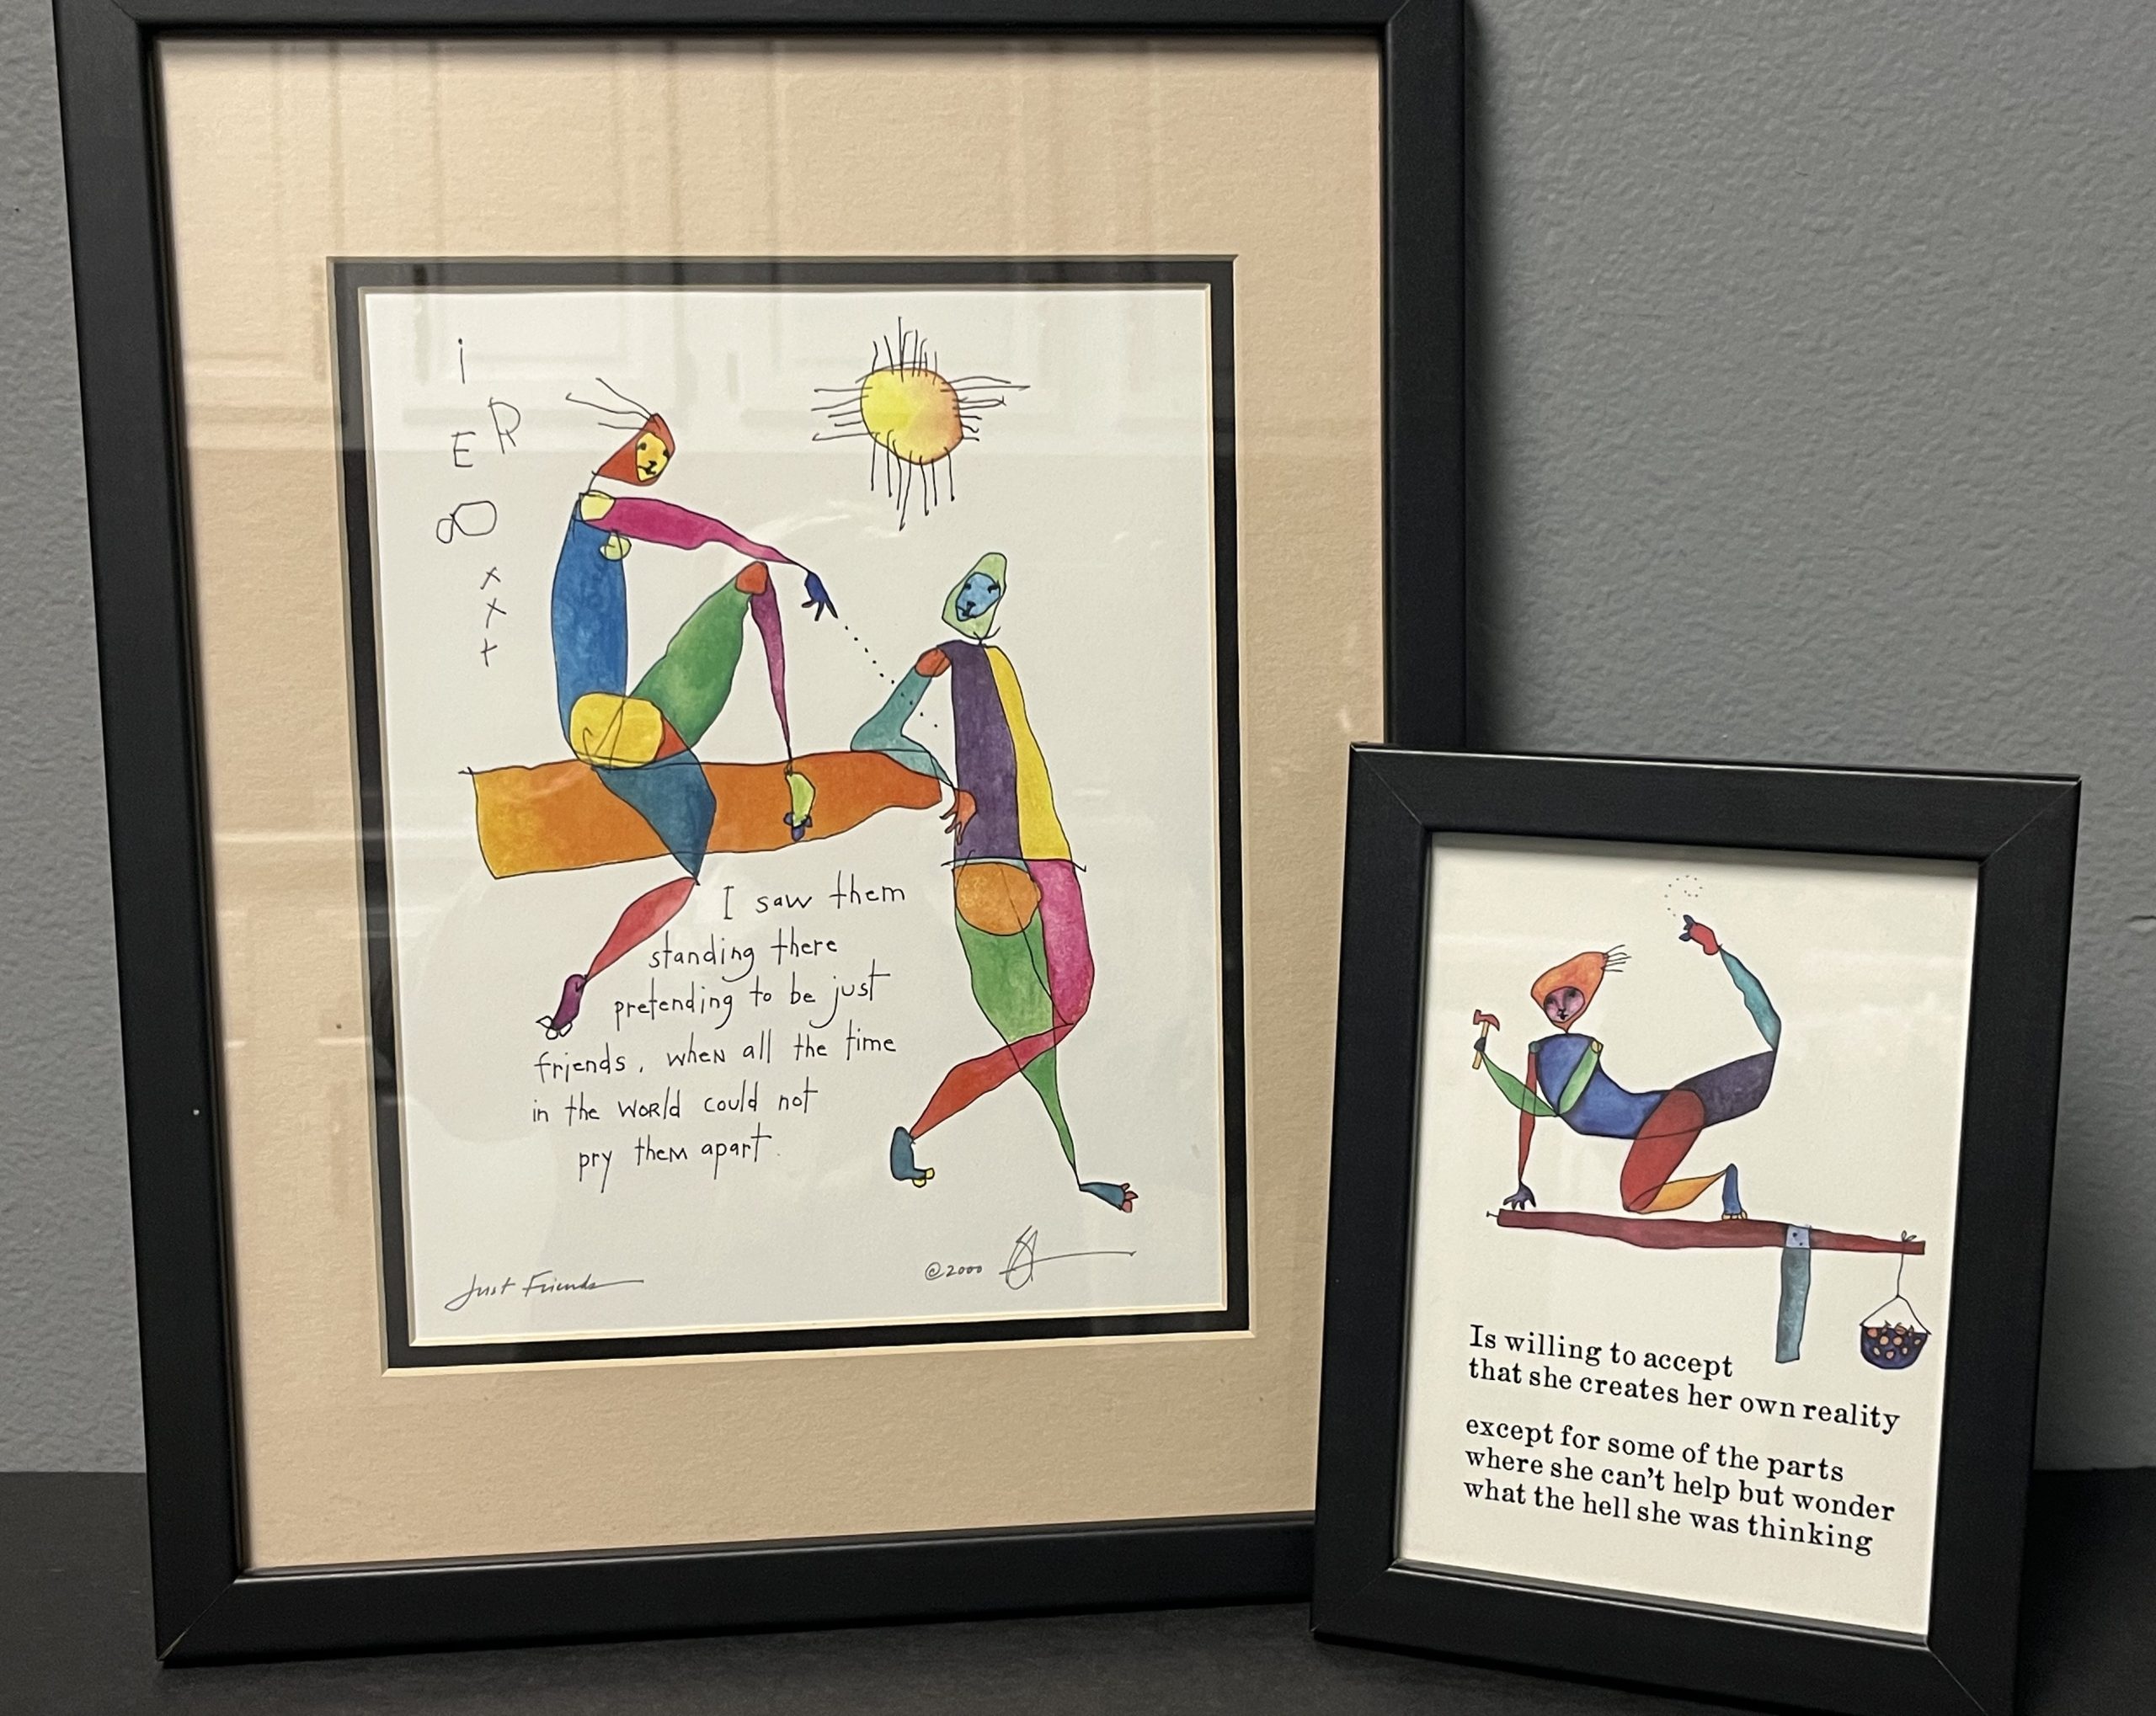 i
E R
8
x
x
+
I saw them
standing there
pretending to be just
friends, when all the time
in the world could not
pry them apart.
Just Friends
©2000
Is willing to accept
that she creates her own reality
except for some of the parts
where she can't help but wonder
what the hell she was thinking